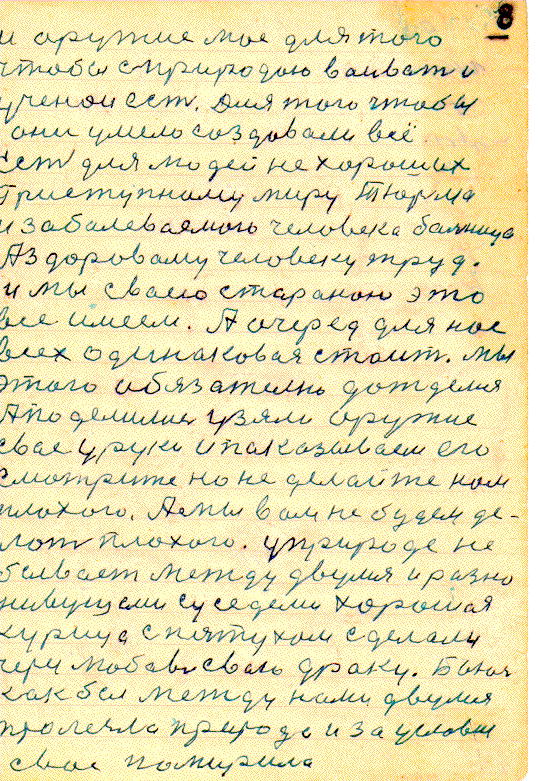 8
и оружие мое для того
чтобы с природою воивать и
ученои ест. Для того чтобы
они умело создовали всё
ест для людей не хороших
Приступному миру Тюрма
изаболеваемого человека болница
Аздоровому человеку труд.
и мы своею стараною это
все имеем. А очеред для нас
всех одинаковая стоит. мы
этого обязателно дождемся
Аподелили узяли оружие
свае у руки ипаказываем его
смотрите но не делайте нам
плохого. Амы вам не будем де-
лат плохого. уприроде не
бывает между двумя иразно
живущими суседеми хорошая
курица спятухом сделали
чери любов свою драку. Бьюч
как бы между нами двумя
пролегла природа и за условие
свое помирила